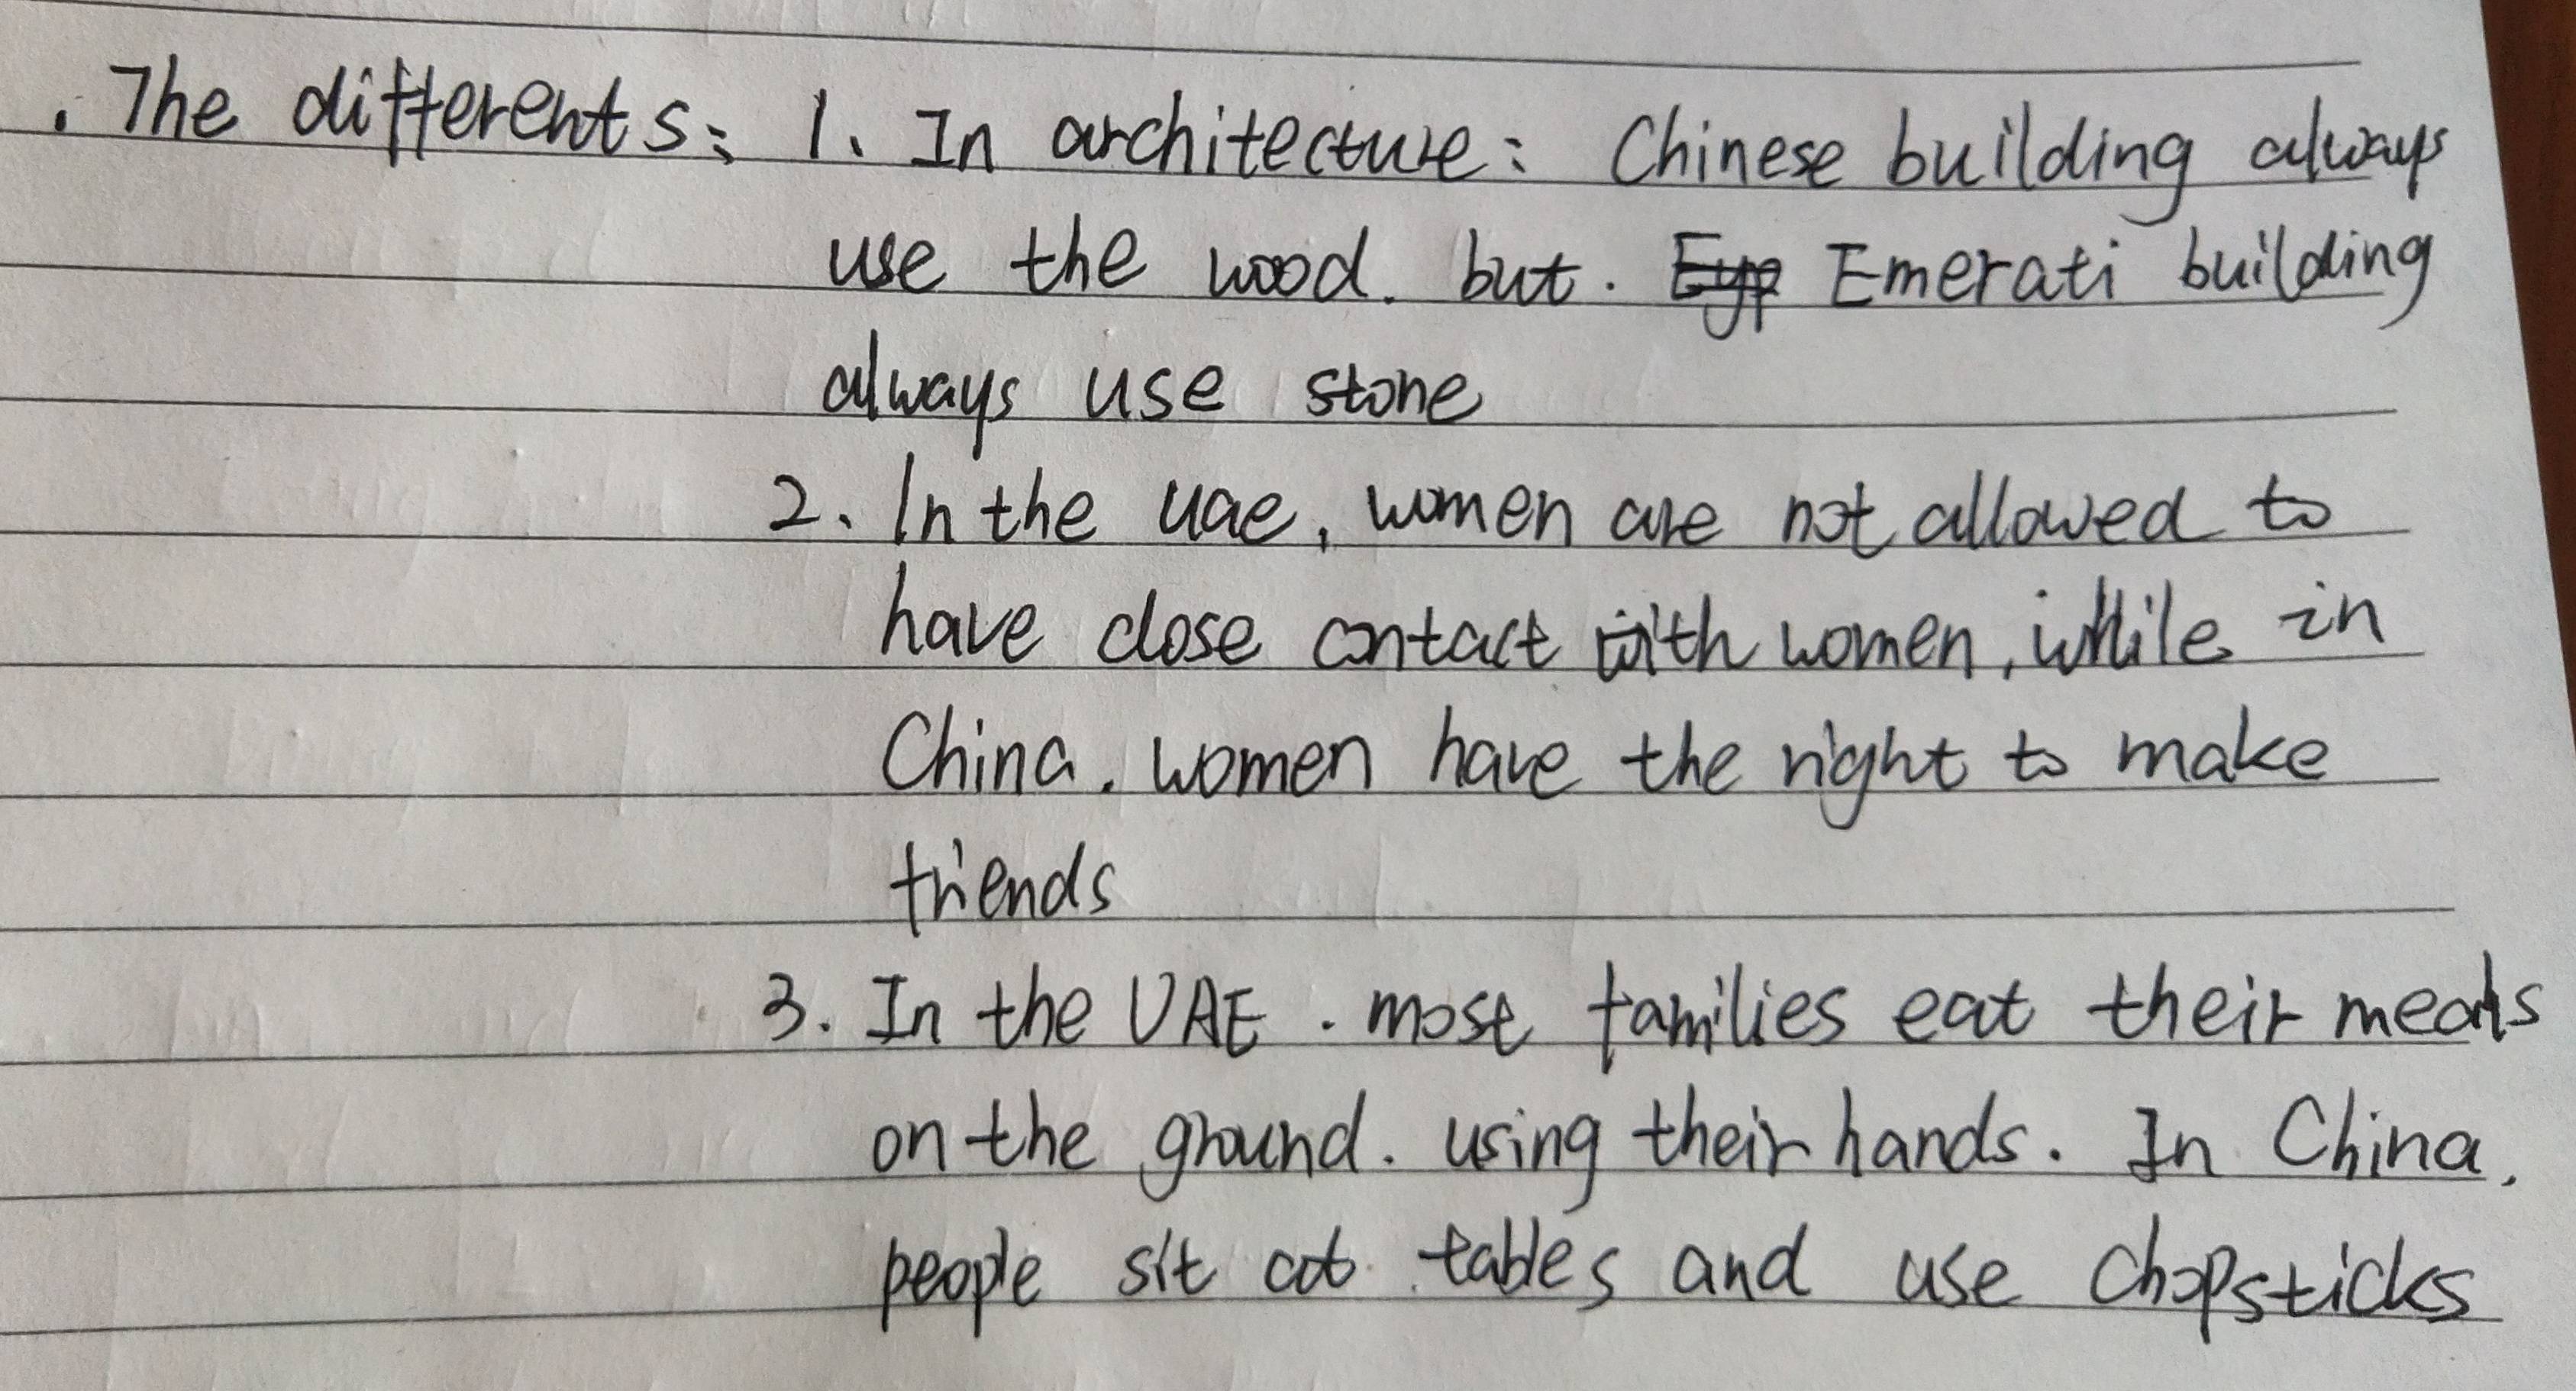 . The differents: 1. In architecture: Chinese building always
use the wood. but. Eyp Emerati building
always use stone
2. In the uae, women are not allowed to
have close contact with women, while in
China. women have the right to make
friends
3. In the UAE. most families eat their meals
on the ground. using their hands. In China,
people sit at tables and use chopsticks